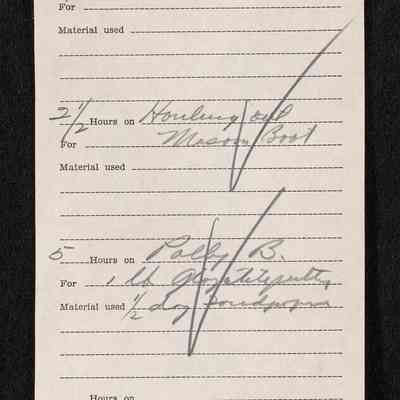 For
Material used
2 1/2 Hours on Hauling out
For Mason Boat
Material used
5 Hours on Polly B.
For 1 lb
Material used 1/2 doz
Hours on